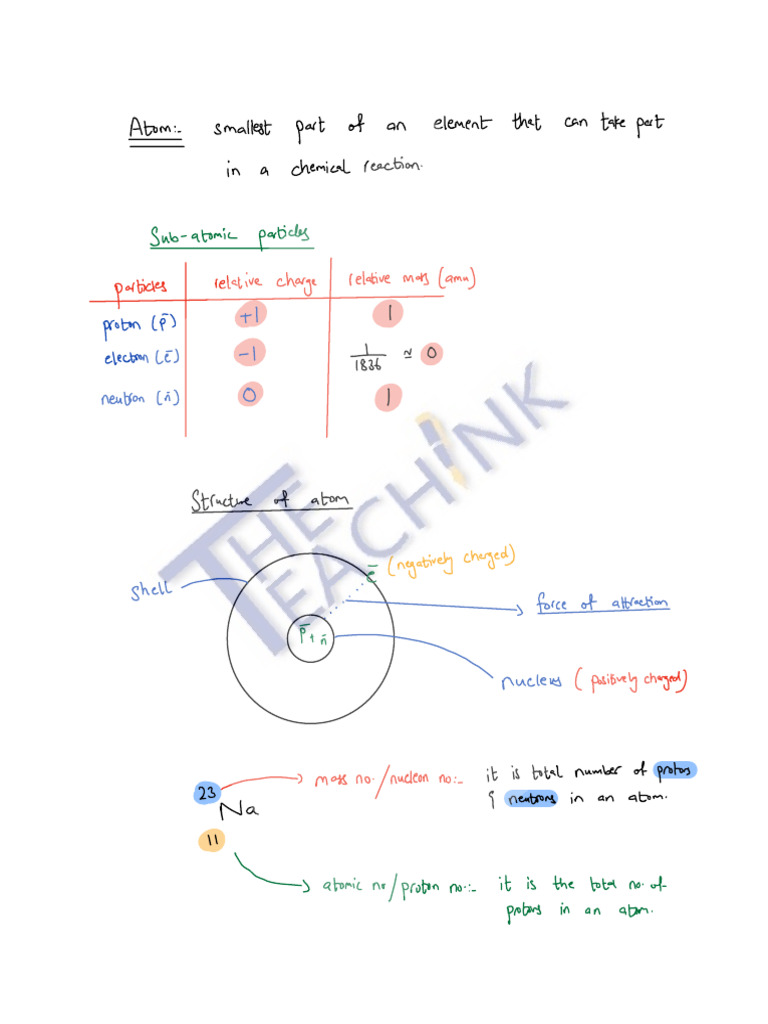 Atom:- smallest part of an element that can take part
in a chemical reaction.
Sub-atomic particles
particles relative charge relative mass (amu)
proton (p̄) +1 1
electron (ē) -1 1/1836 ≃ 0
neutron (n̄) 0 1
THE TEACHINK
Structure of atom
ē (negatively charged)
shell
force of attraction
p̄ + n̄
nucleus (positively charged)
23 → mass no./nucleon no:- it is total number of protons
Na & neutrons in an atom.
11
→ atomic no/proton no.:- it is the total no. of
protons in an atom.